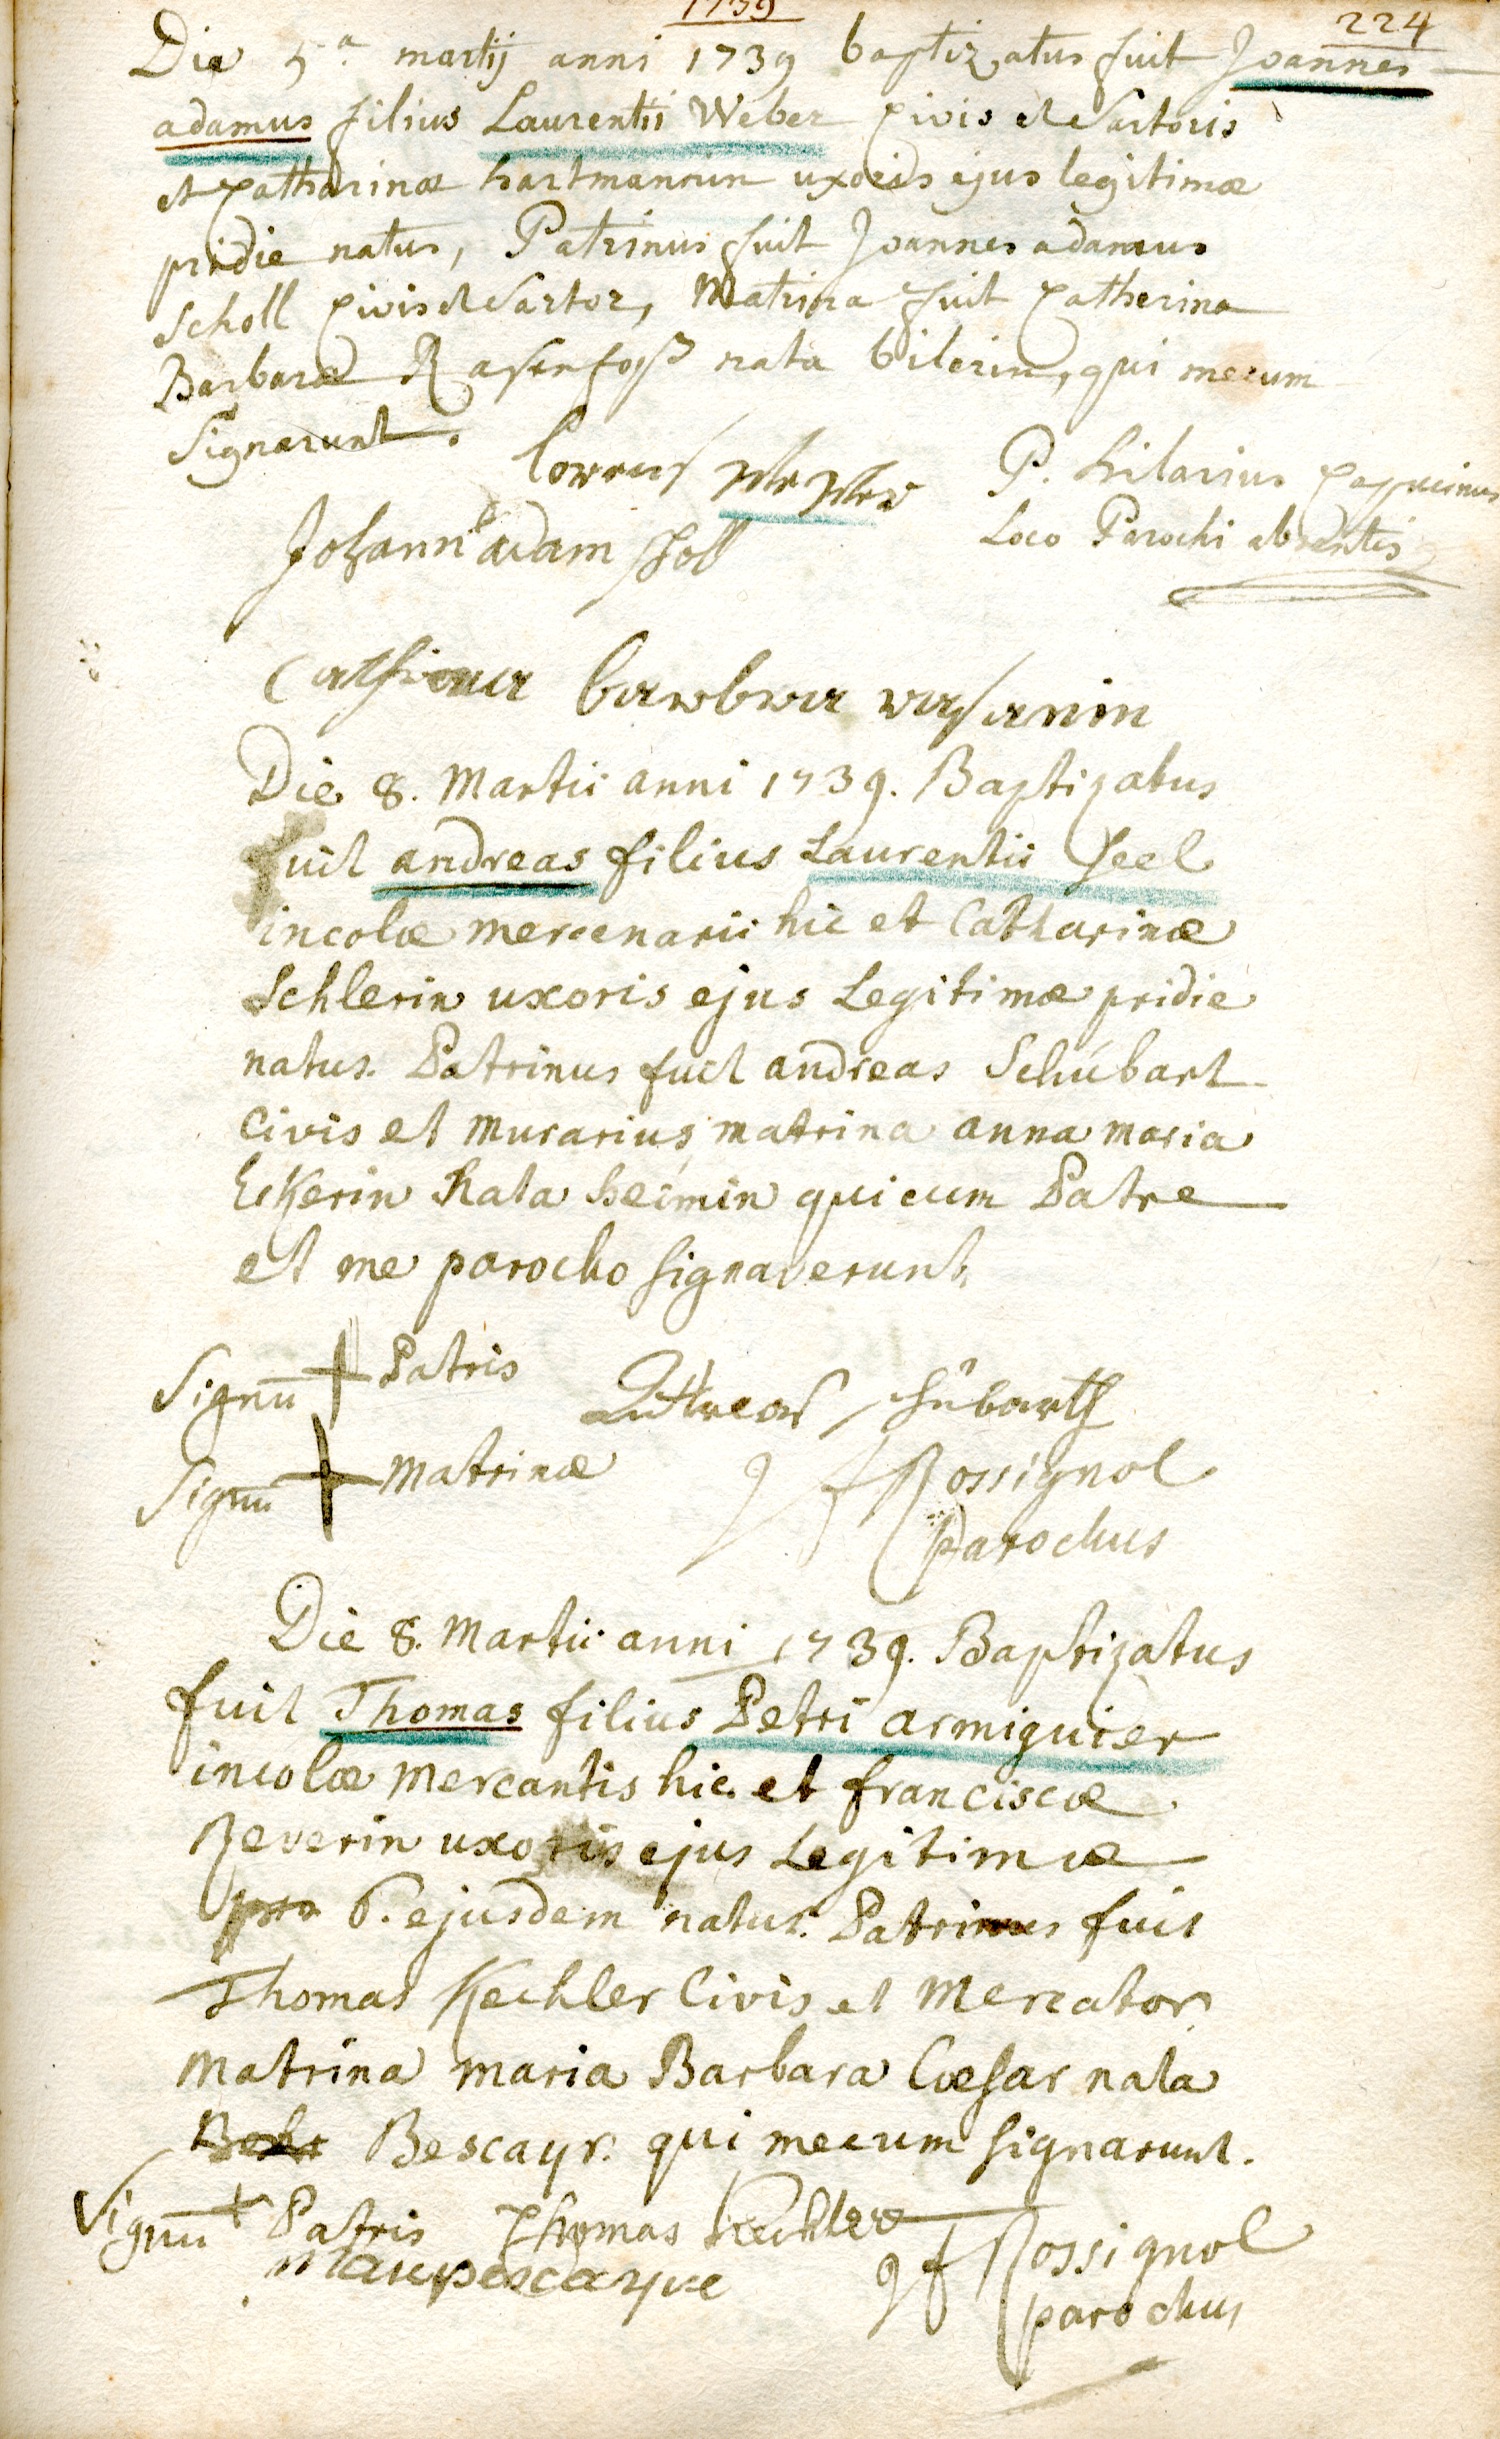 1739
224
Die 5.a martij anni 1739 baptizatus fuit Joannes
adamus filius Laurentii Weber Civis et Sartoris
et Catharinæ hartmannin uxoris ejus legitimæ
pridie natus, Patrinus fuit Joannes adamus
Scholl Civis et Sartor, Matrina fuit Catherina
Barbara nata qui mecum
Signarunt.
P. hilarius Capucinus
Loco Parochi absentis
Johann adam scholl
Die 8. Martii anni 1739. Baptizatus
fuit andreas filius Laurentii Seel
incolæ mercenarii hic et Catharinæ
Schlerin uxoris ejus Legitimæ pridie
natus. Patrinus fuit andreas Schúbart
Civis et murarius, matrina anna maria
Eckerin Nata heimin qui cum Patre
et me parocho signaverunt.
Signū + Patris
Andreas schúbarth
Signū + Matrinæ
J f Rossignol
parochus
Die 8. Martii anni 1739. Baptizatus
fuit Thomas filius Petri armiguier
incolæ mercantis hic et franciscæ
Reverin uxoris ejus Legitimæ
6. ejusdem natus. Patrinus fuit
Thomas Kechler Civis et Mercator
Matrina maria Barbara Cæsar nata
Bescayr. qui mecum signarunt.
Signū + Patris Thomas Kechler
J f Rossignol
parochus